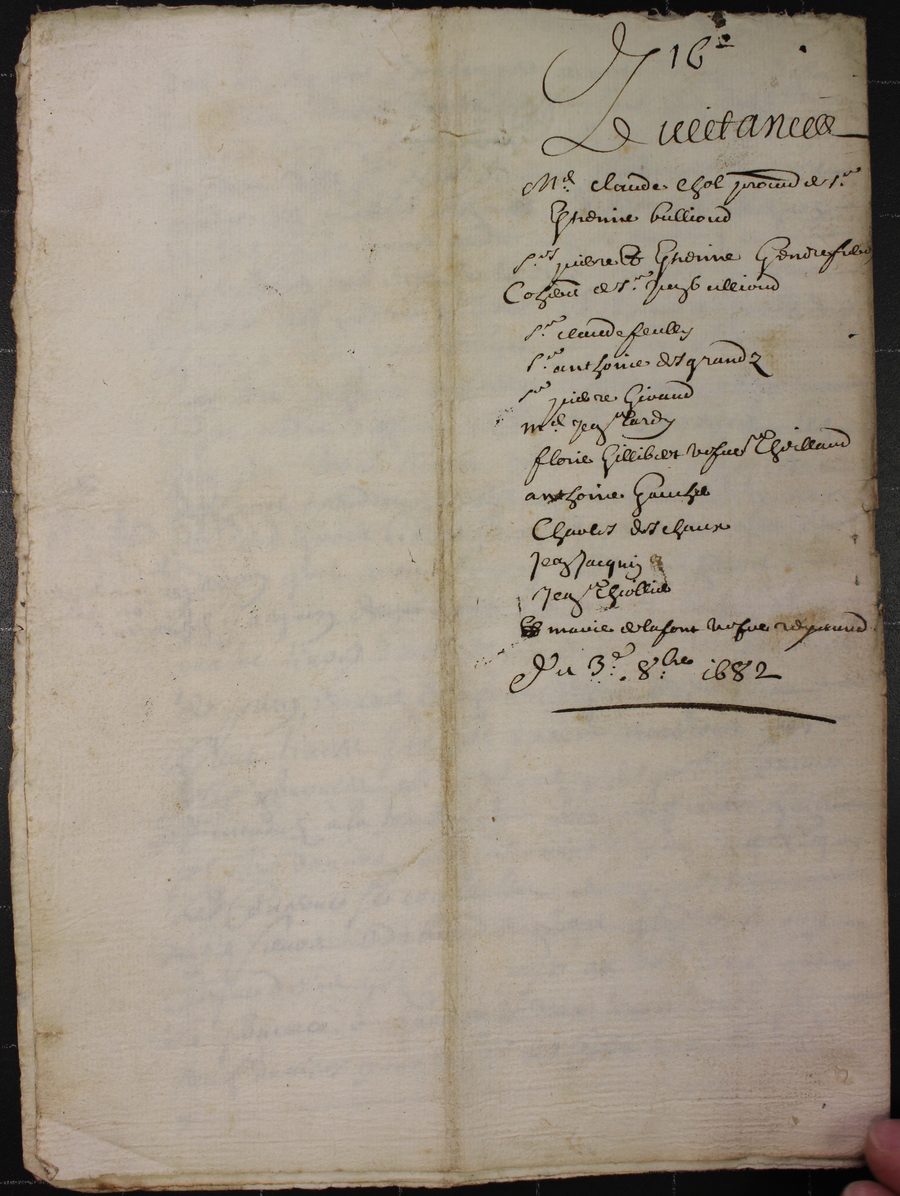 16e
Quictances
Md claude chol procur de sr
Estienne bulliond
srs pierre & Estienne Gendre fili
Coheris de sr Jean bulliond
sr claude feully
sr anthoine desgrandz
sr pierre Giraud
md Jean tardy
florie Gillibert vefue Thoilland
anthoine Gauche
Charles deschaux
Jean Jacquin
Jean Thiollie
& marie delafont vefue reymond
Du 3e 8bre 1682